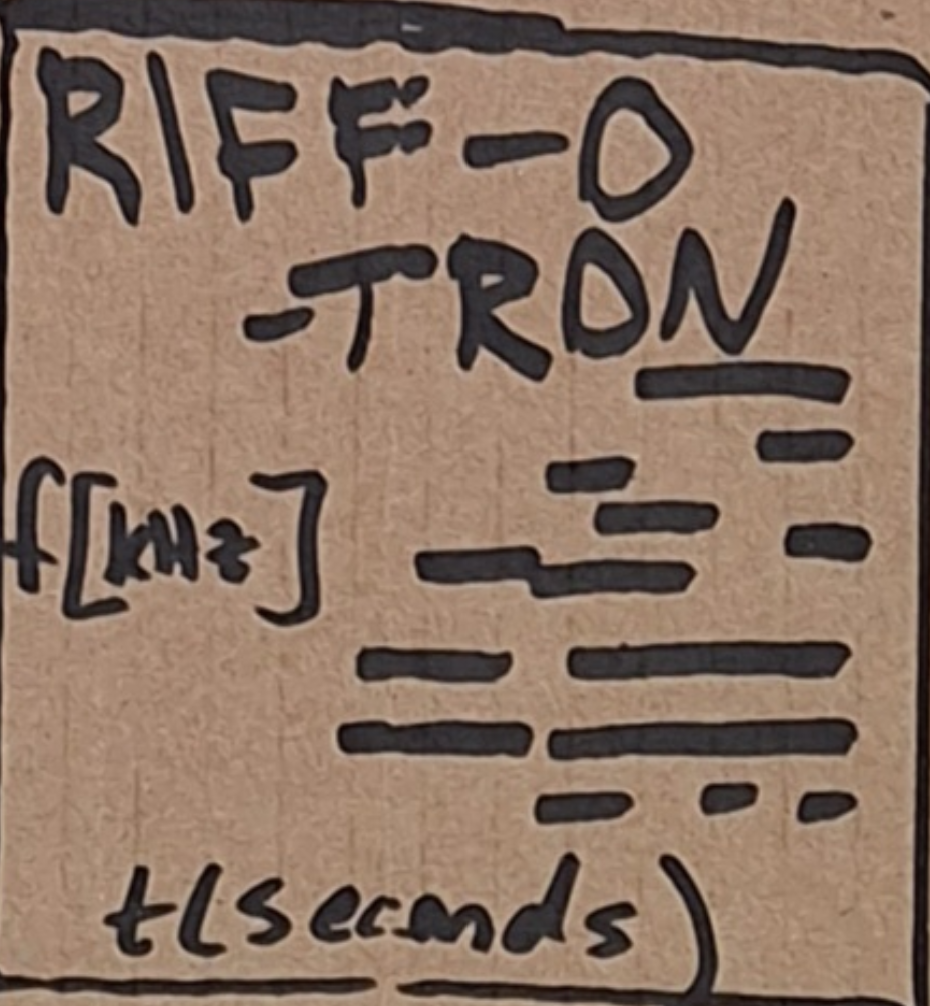 RIFF-O
-TRON
f[kHz]
t(seconds)